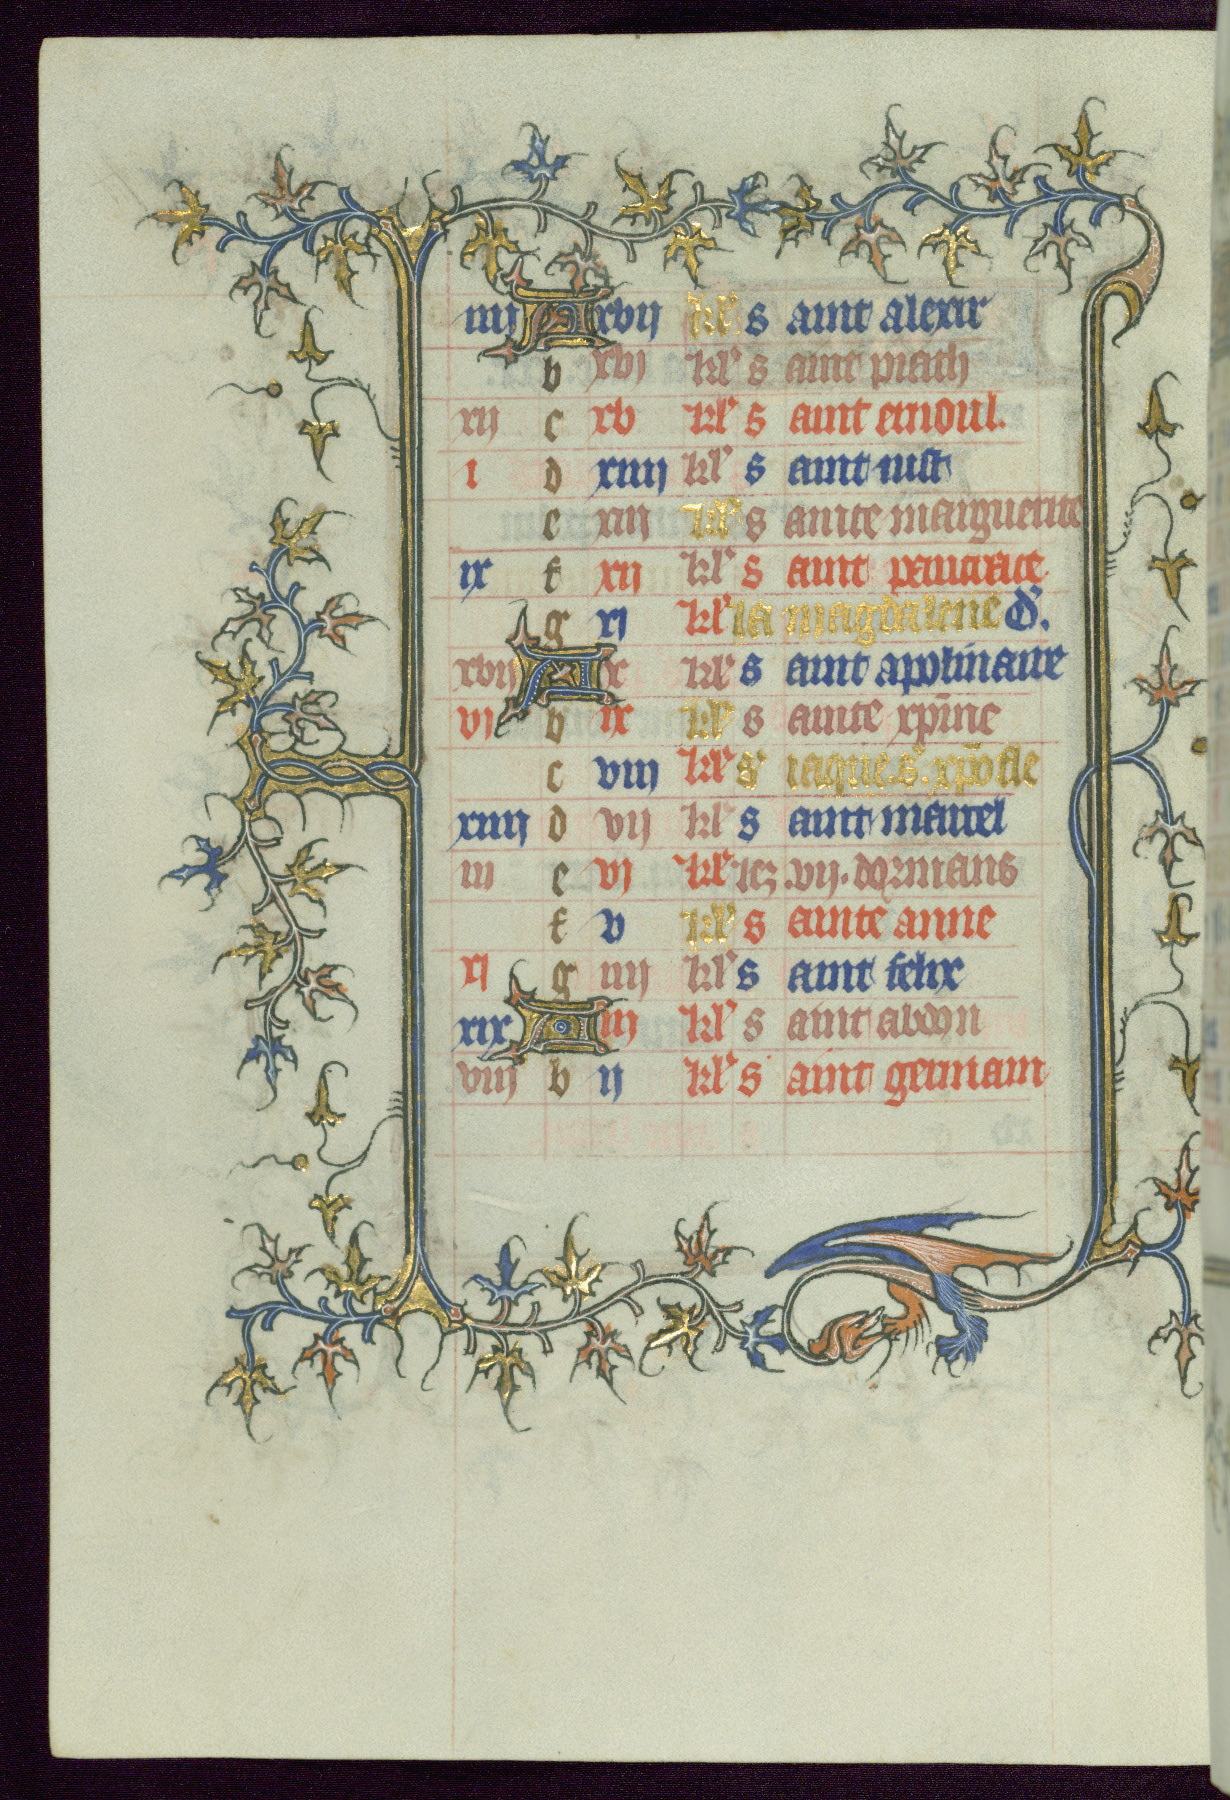 iiij A xvij kl' s aint alexir
b xvj kl' s aint piath
xij c xv kl' s aint ernoul.
i d xiiij kl' s aint iust
e xiij kl' s ainte marguerite
ix f xij kl' s aint pancrace.
g xj kl' la magdalene d'.
xvij A x kl' s aint apolinaire
vj b ix kl' s ainte xp̄ine
c viij kl' s' iaque. s'. xp̄ofle
xiiij d vij kl' s aint marcel
iij e vj kl' lez .vij. dormans
f v kl' s ainte anne
xj g iiij kl' s aint felix
xix A iij kl' s aint abdon
viij b ij kl' s aint germain